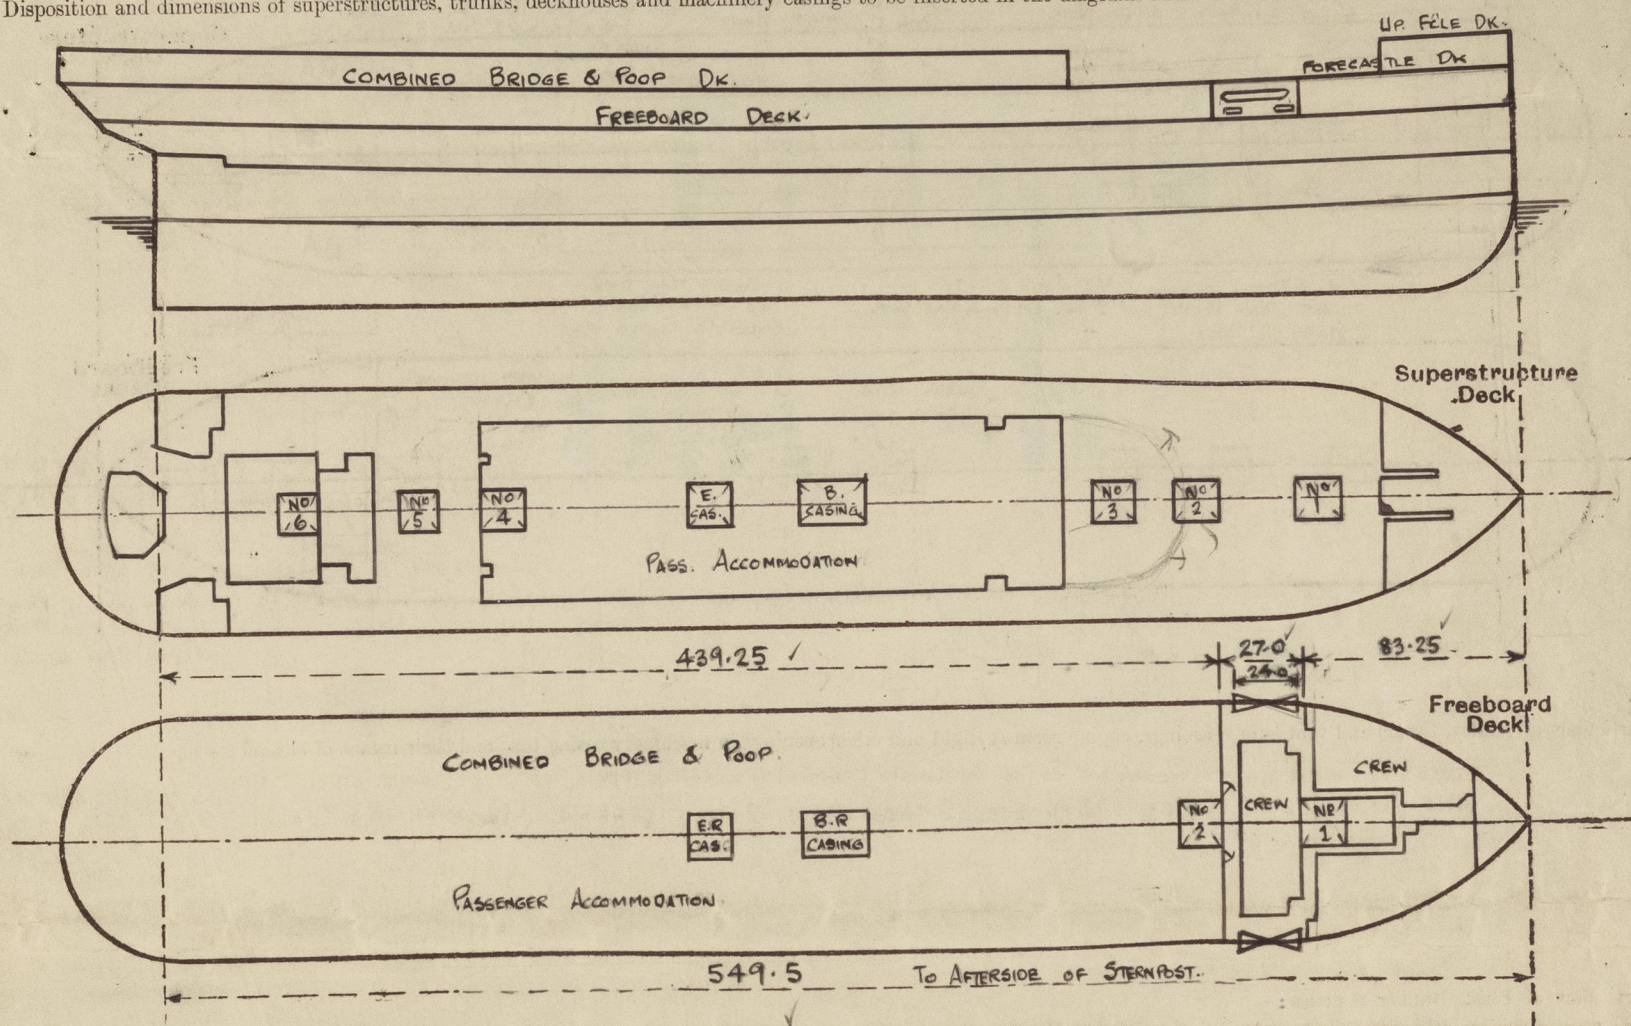 Disposition and dimensions of superstructures, trunks, deckhouses and machinery casings to be inserted in the
UP. FČLE DK.
FORECASTLE DK
COMBINED BRIDGE & POOP DK.
FREEBOARD DECK.
Superstructure
Deck
NO 6
NO 5
NO 4
E. CAS.
B. CASING
NO 3
NO 2
NO 1
PASS. ACCOMMODATION
439.25
27.0
24.0
83.25
Freeboard
Deck
COMBINED BRIDGE & POOP.
CREW
E.R CAS.
B.R CASING
NO 2
CREW
NO 1
PASSENGER ACCOMMODATION
549.5 TO AFTERSIDE OF STERNPOST.